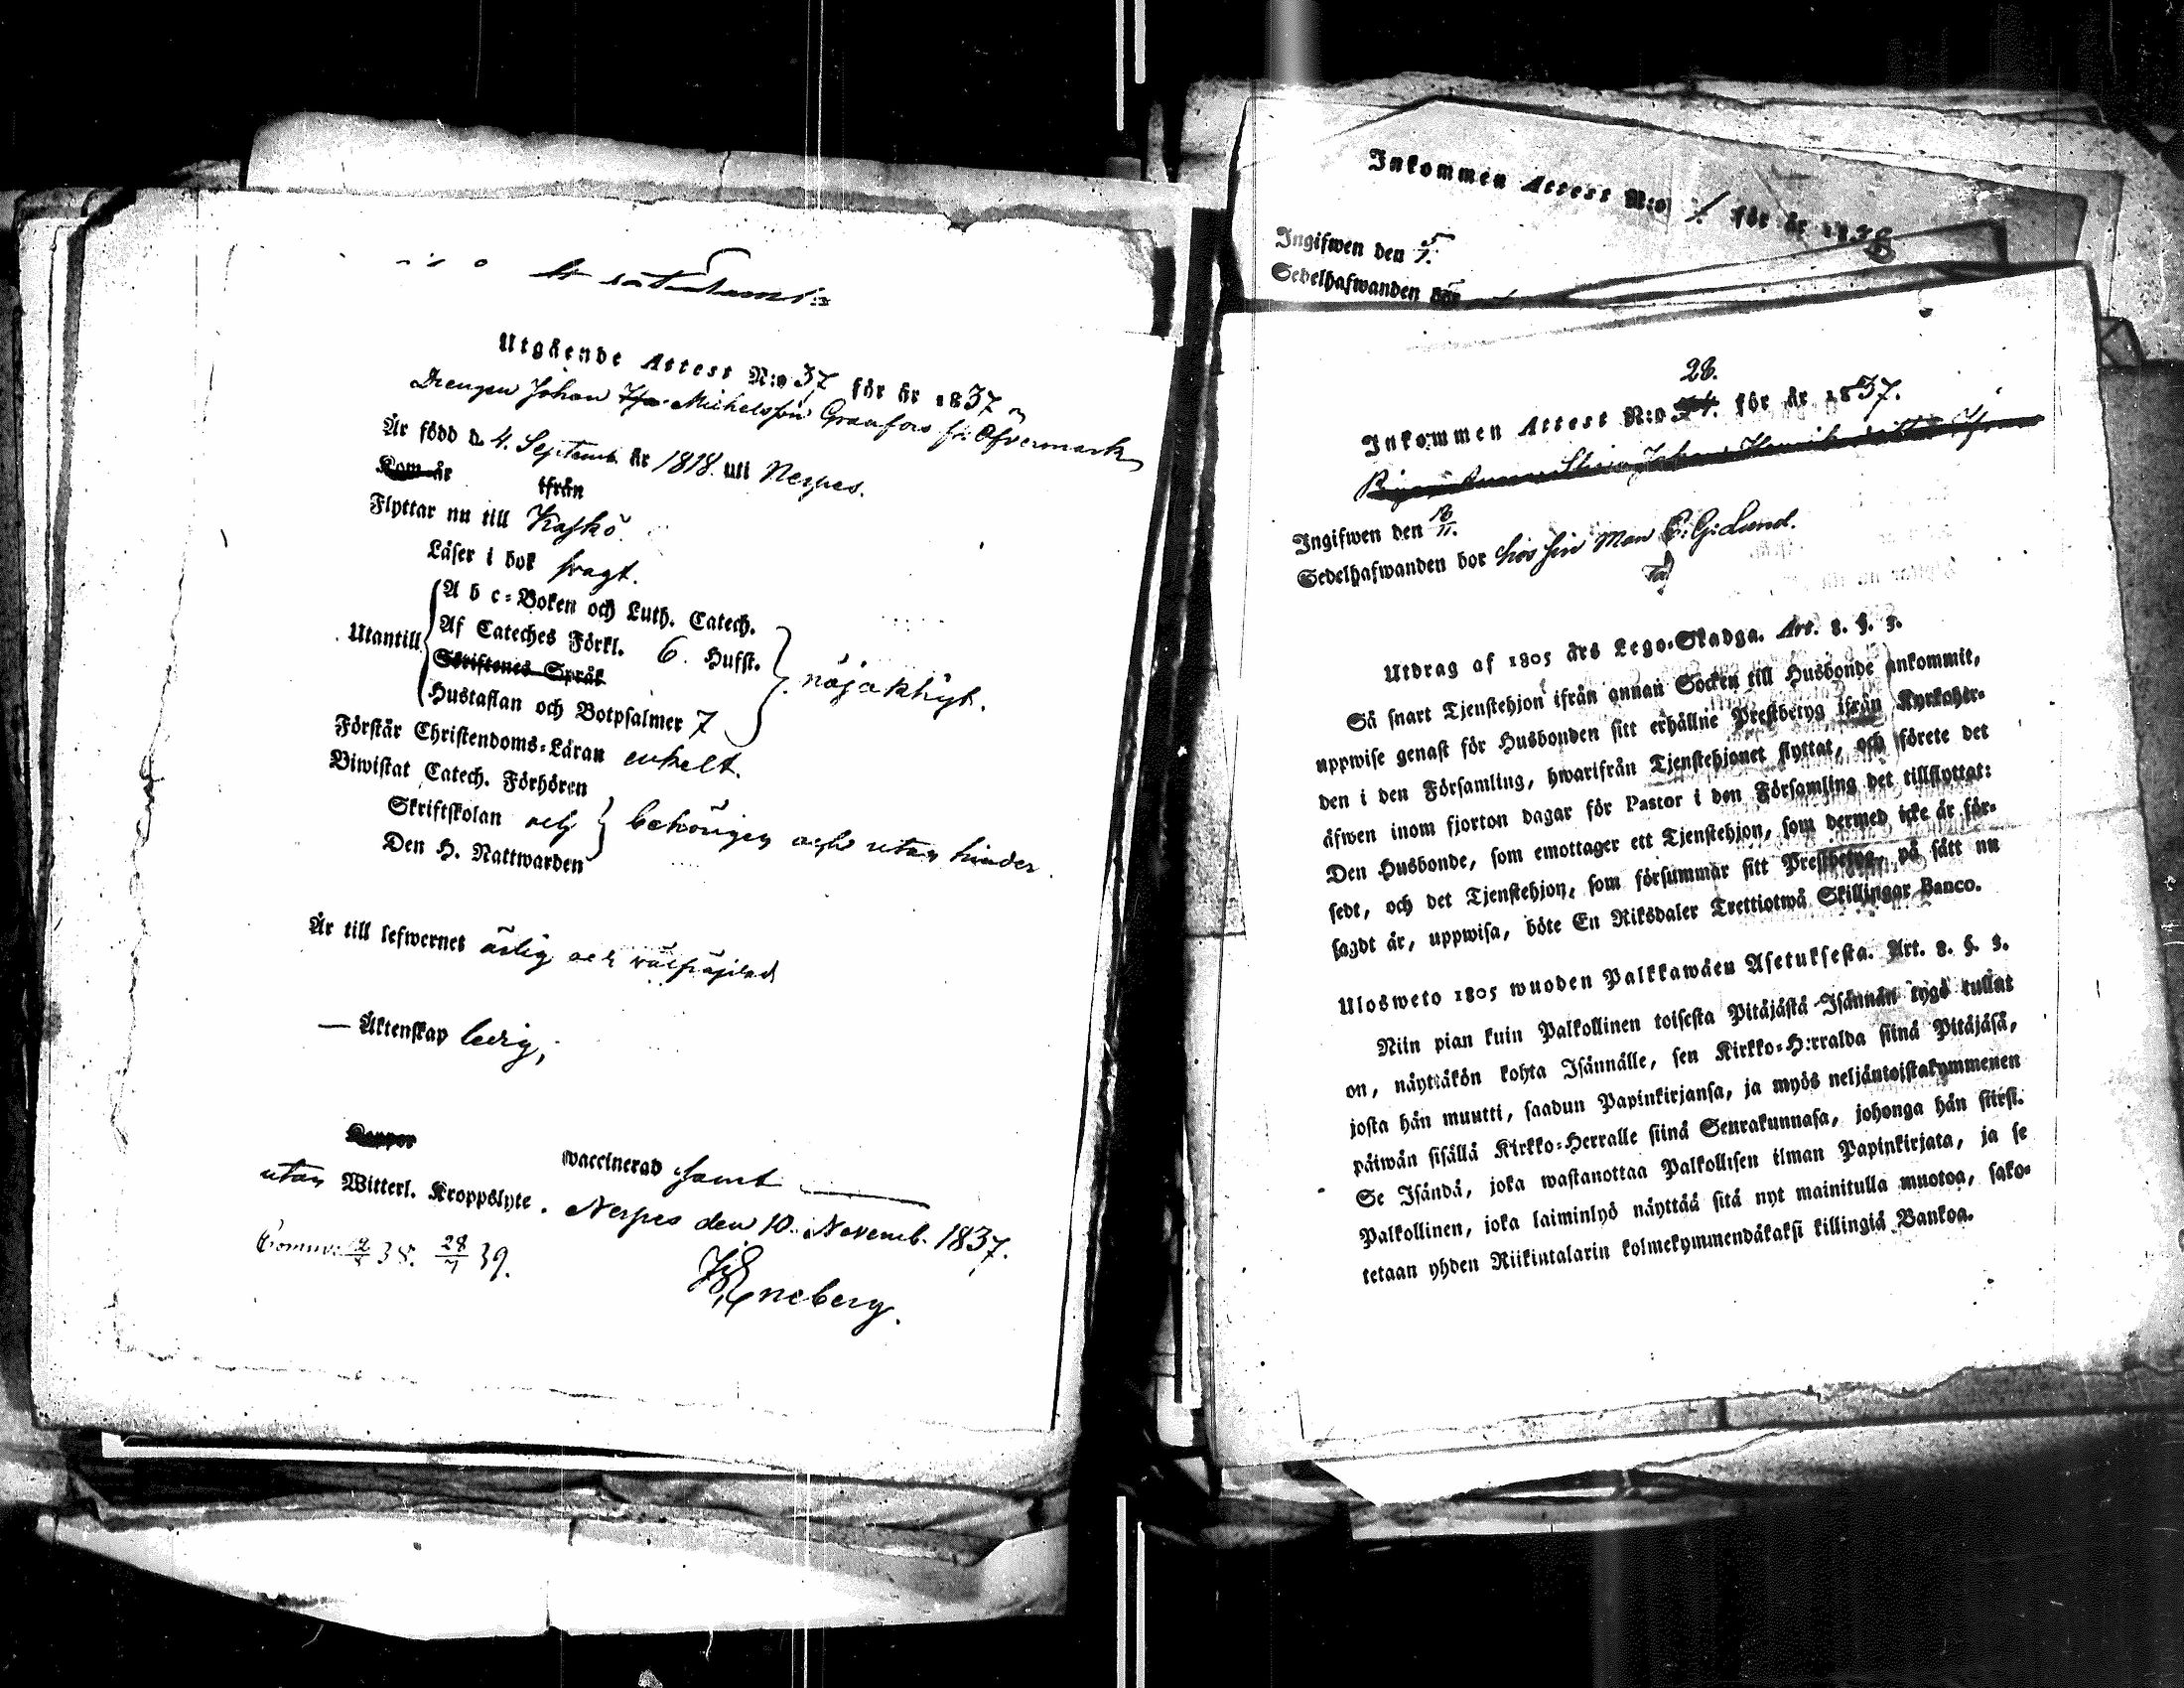 Utgående Attest N:o 37 för år 1837
Drengen Johan Michelsson Granfors fr. Öfvermark
Är född d. 4. Septemb. år 1818. uti Nerpes.
Kom år ifrån
Flyttar nu till Kaskö.
Läser i bok svagt.
Utantill
A b c-Boken och Luth. Catech.
Af Cateches Förkl. 6. Hufst.
Skriftenes Språk
Hustaflan och Botpsalmer 7
nöjaktigt.
Förstår Christendoms-Läran enkelt.
Biwistat Catech. Förhören
Skriftskolan och
Den H. Nattwarden
behörigen och utan hinder.
Är till lefwernet ärlig och välfrägdad
— Äktenskap ledig,
Koppor waccinerad samt
utan Witterl. Kroppslyte. Nerpes den 10. Novemb. 1837.
38. 28 39.
Eneberg.
Inkommen Attest N:o 1 för år 1838
Ingifwen den 5/1.
Sedelhafwanden bor
28.
Inkommen Attest N:o för år 1837.
Ingifwen den 11.
Sedelhafwanden bor hos sin Man G: Lund.
Utdrag af 1805 års Lego-Stadga. Art. 8. §. 3.
Så snart Tjenstehjon ifrån annan Socken till Husbonde ankommit,
uppwise genast för Husbonden sitt erhållne Prestbetyg ifrån Kyrkoher-
den i den Församling, hwarifrån Tjenstehjonet flyttat, och förete det
äfwen inom fjorton dagar för Pastor i den Församling det tillflyttat:
Den Husbonde, som emottager ett Tjenstehjon, som dermed icke är för-
sedt, och det Tjenstehjon, som försummar sitt Prestbetyg, på sätt nu
sagdt är, uppwisa, böte En Riksdaler Trettiotwå Skillingar Banco.
Ulosweto 1805 wuoden Palkkawäen Asetuksesta. Art. 8. §. 3.
Niin pian kuin Palkollinen toisesta Pitäjästä Isännän tygö tullut
on, näyttäkön kohta Isännälle, sen Kirkko-H:rralda siinä Pitäjäsä,
josta hän muutti, saadun Papinkirjansa, ja myös neljäntoistakymmenen
päiwän sisällä Kirkko-Herralle siinä Seurakunnasa, johonga hän stirsi.
Se Isändä, joka wastanottaa Palkollisen ilman Papinkirjata, ja se
Palkollinen, joka laiminlyö näyttää sitä nyt mainitulla muotoa, sako-
tetaan yhden Riikintalarin kolmekymmendäkaksi killingiä Bankoa.